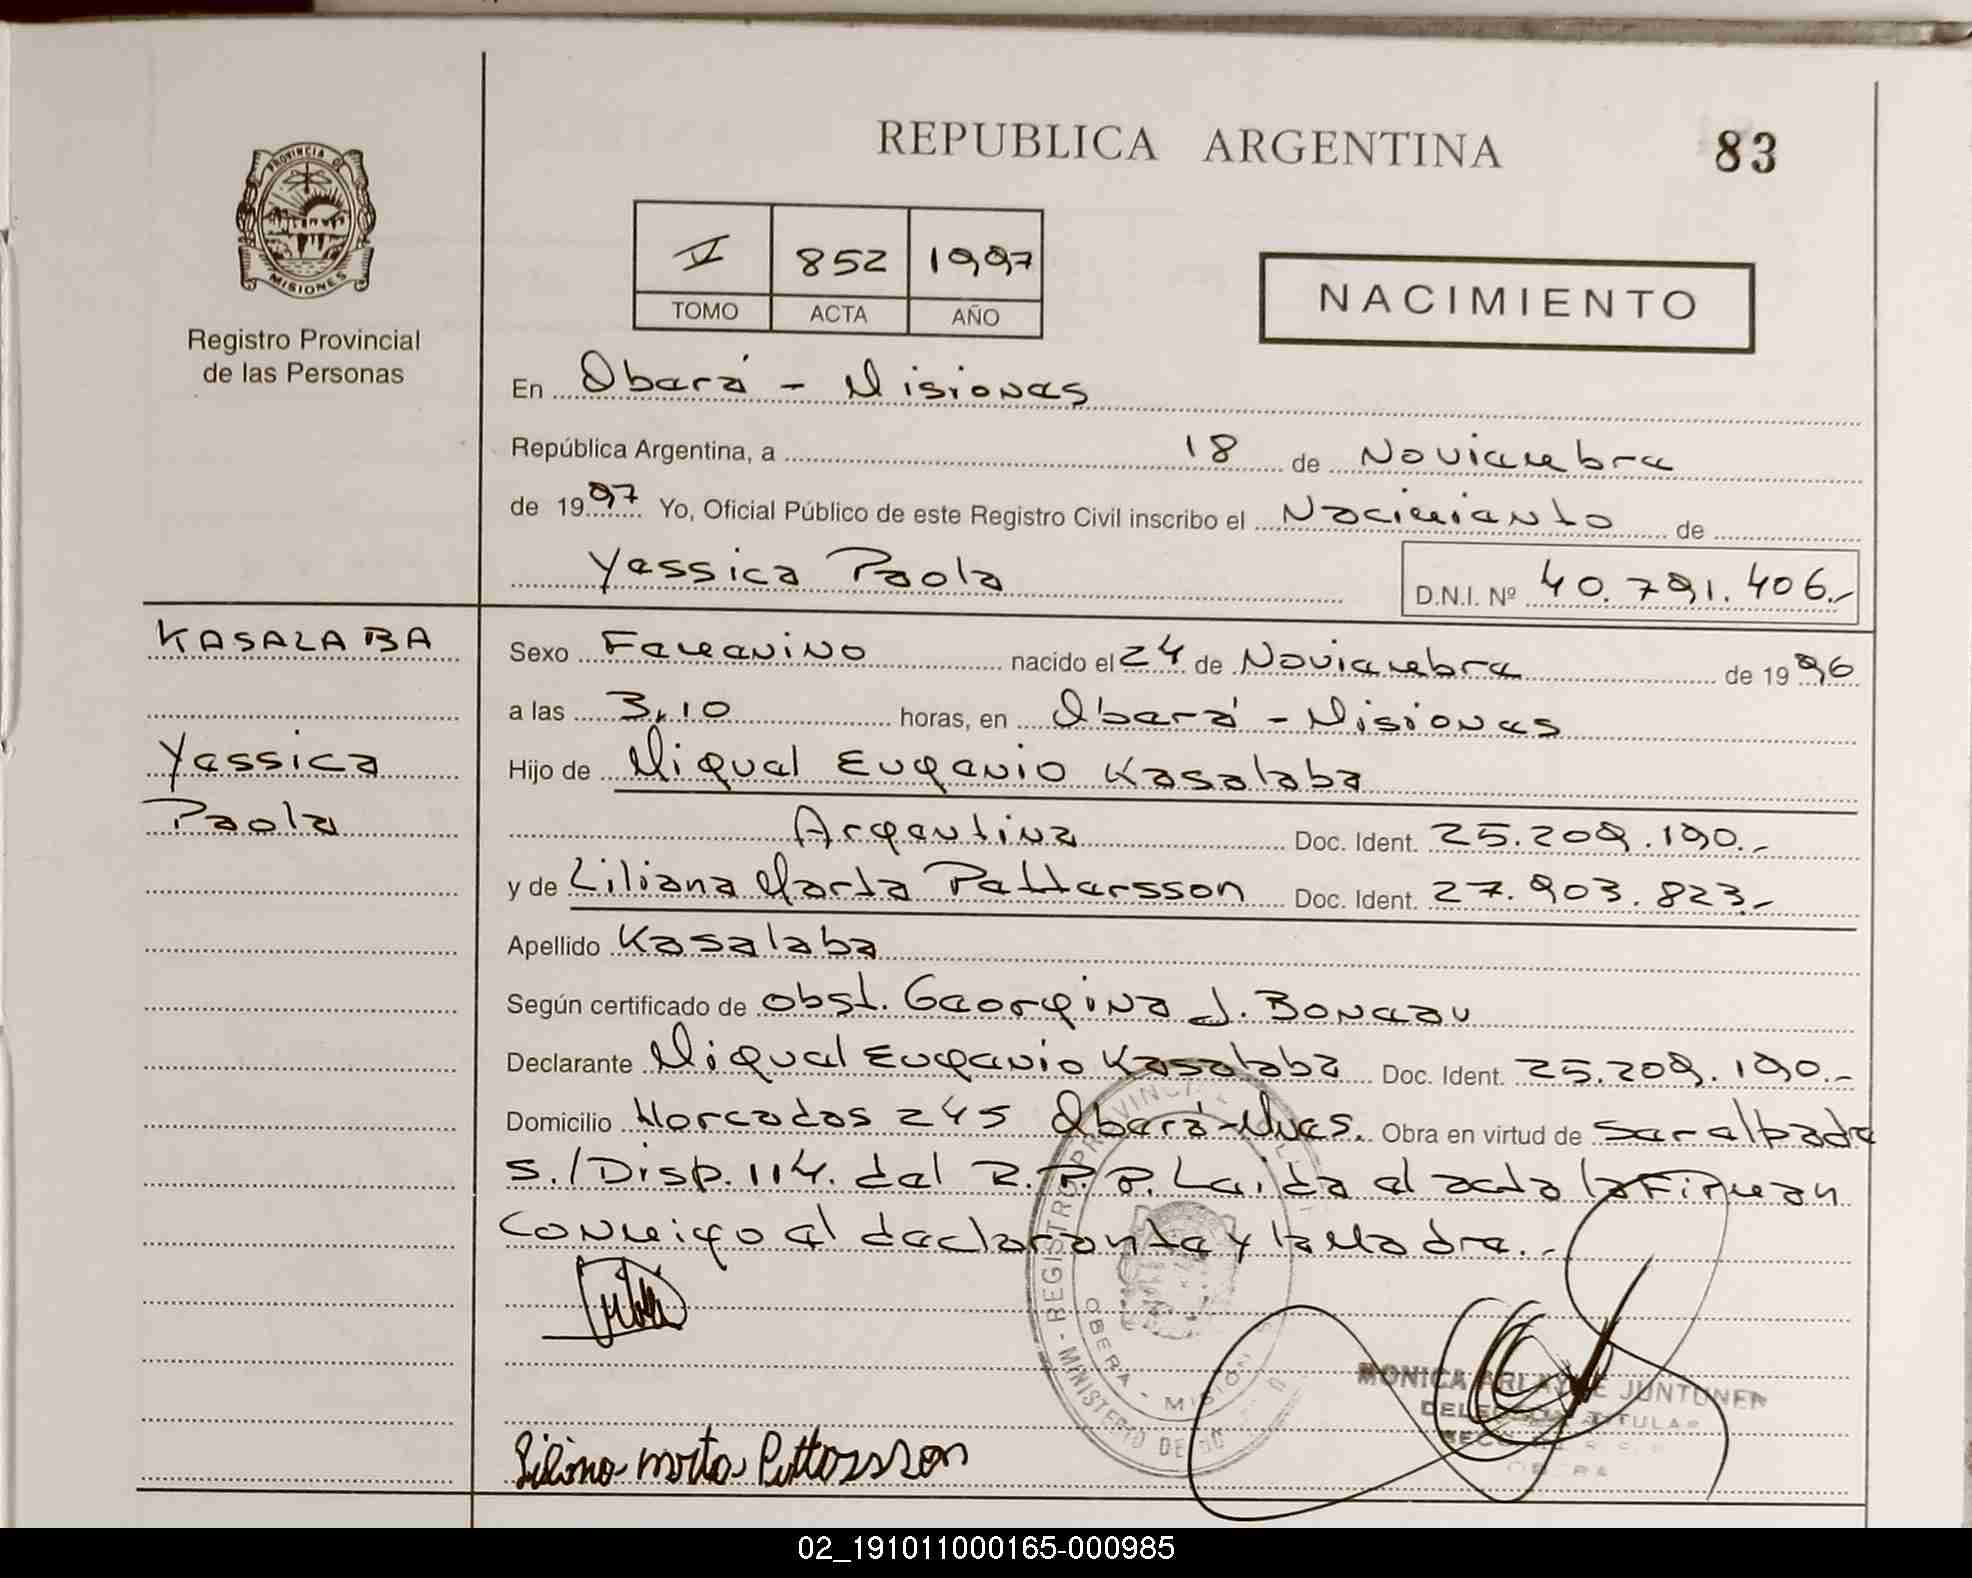 REPUBLICA ARGENTINA
83
PROVINCIA DE
MISIONES
Registro Provincial
de las Personas
V 852 1997
TOMO ACTA AÑO
NACIMIENTO
En Oberá - Misiones
República Argentina, a 18 de Noviembre
de 1997 Yo, Oficial Público de este Registro Civil inscribo el Nacimiento de
Yessica Paola
D.N.I. Nº 40.791.406.-
KASALABA
Yessica
Paola
Sexo Femenino nacido el 24 de Noviembre de 1996
a las 3,10 horas, en Oberá - Misiones
Hijo de Miguel Eugenio Kasalaba
Argentina Doc. Ident. 25.209.190.-
y de Liliana Marta Pettersson Doc. Ident. 27.903.823.-
Apellido Kasalaba
Según certificado de obst. Georgina J.
Declarante Miguel Eugenio Kasalaba Doc. Ident. 25.209.190.-
Domicilio 245 Oberá-Mnes. Obra en virtud de
S./Disp. 114. del R.P.P. Leída el acta la Firman
Conmigo el declarante y la Madre.-
REGISTRO PROVINCIAL
OBERA - MISIONES
MINISTERIO DE GO
MONICA JUNTUNEN
TITULAR
Liliana Marta Pettersson
02_191011000165-000985